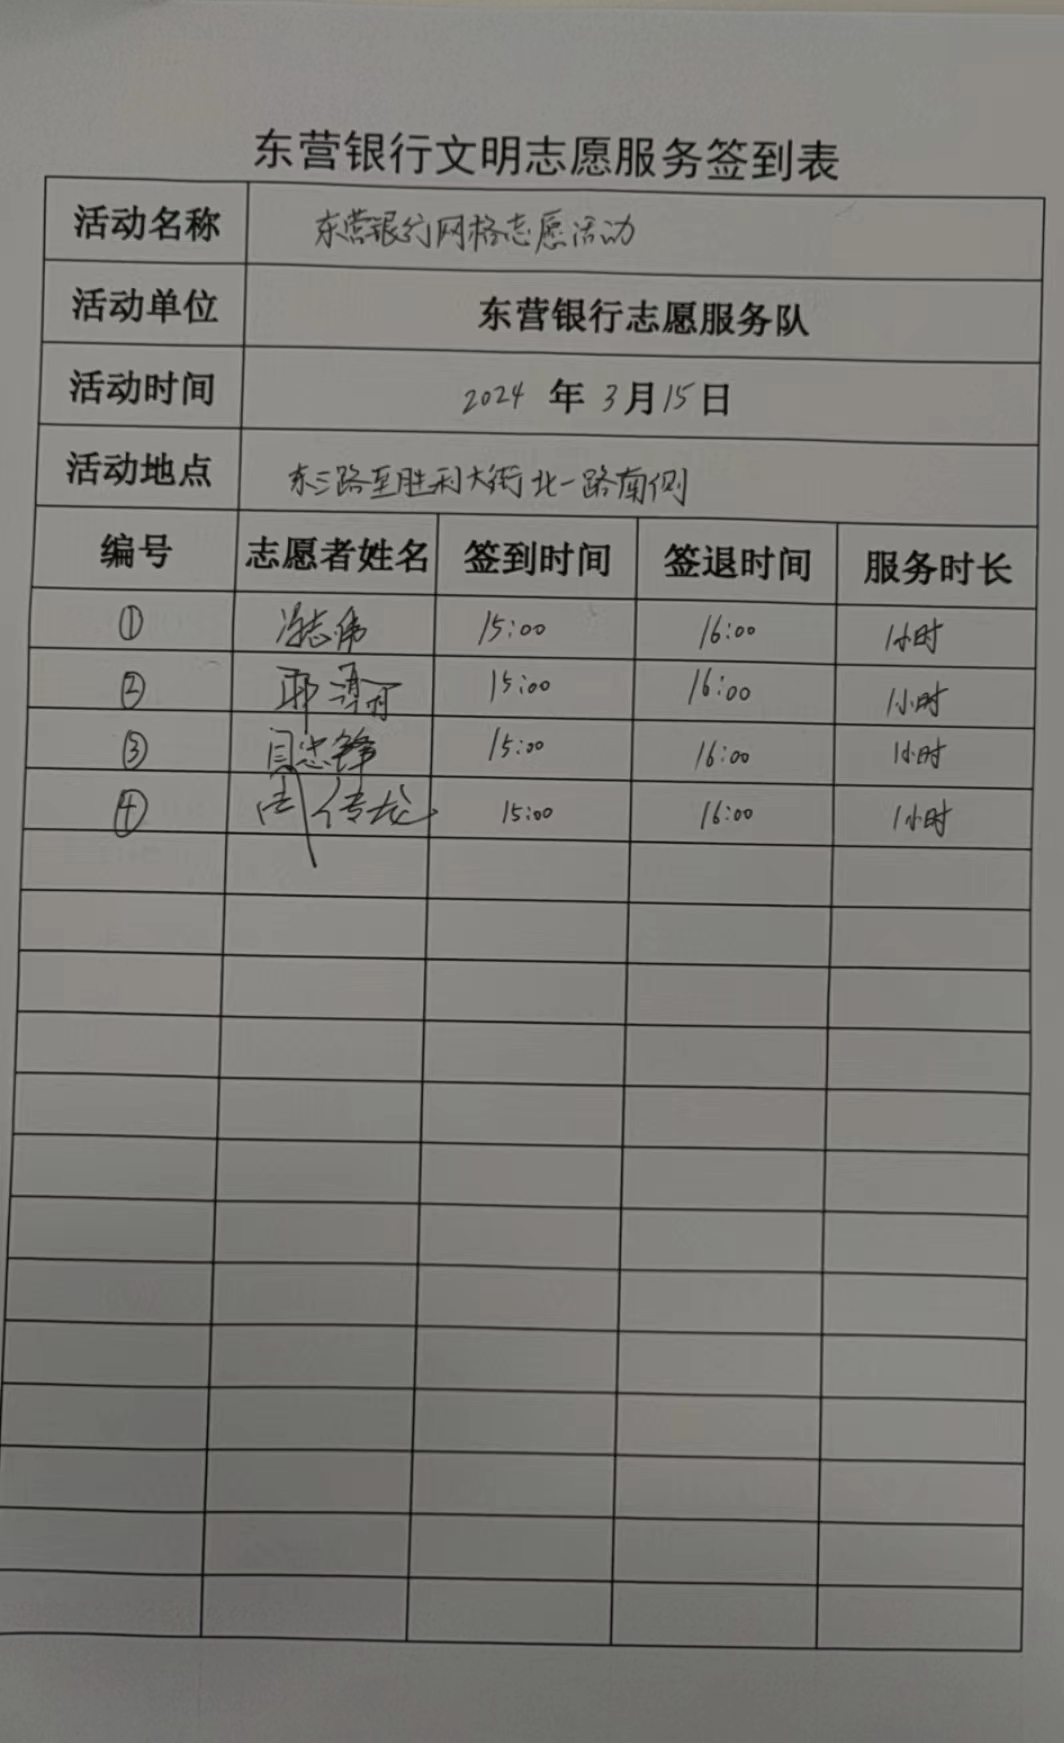 东营银行文明志愿服务签到表
活动名称 东营银行网格志愿活动
活动单位 东营银行志愿服务队
活动时间 2024 年 3月15日
活动地点 东三路至胜利大街北一路南侧
编号 志愿者姓名 签到时间 签退时间 服务时长
① 冯志伟 15:00 16:00 1小时
② 15:00 16:00 1小时
③ 闫忠锋 15:00 16:00 1小时
④ 周传龙 15:00 16:00 1小时